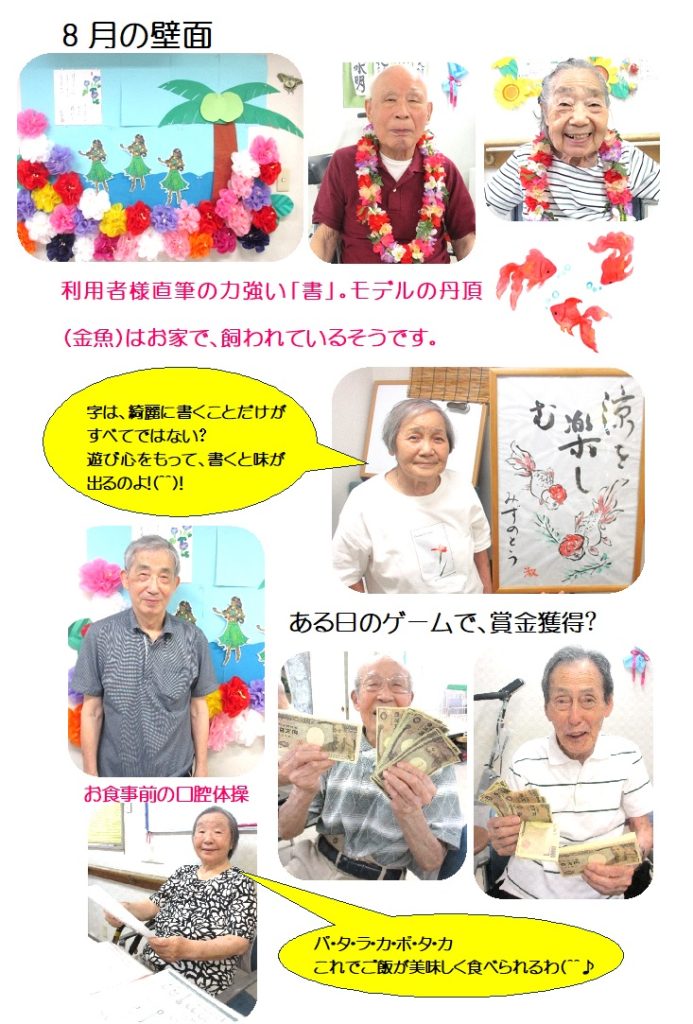 8月の壁面
利用者様直筆の力強い「書」。モデルの丹頂
(金魚)はお家で、飼われているそうです。
字は、綺麗に書くことだけが
すべてではない?
遊び心をもって、書くと味が
出るのよ!(^^)!
涼を
楽し
む
みずのとう
ある日のゲームで、賞金獲得?
お食事前の口腔体操
パ・タ・ラ・カ・ポ・タ・カ
これでご飯が美味しく食べられるわ(^^♪